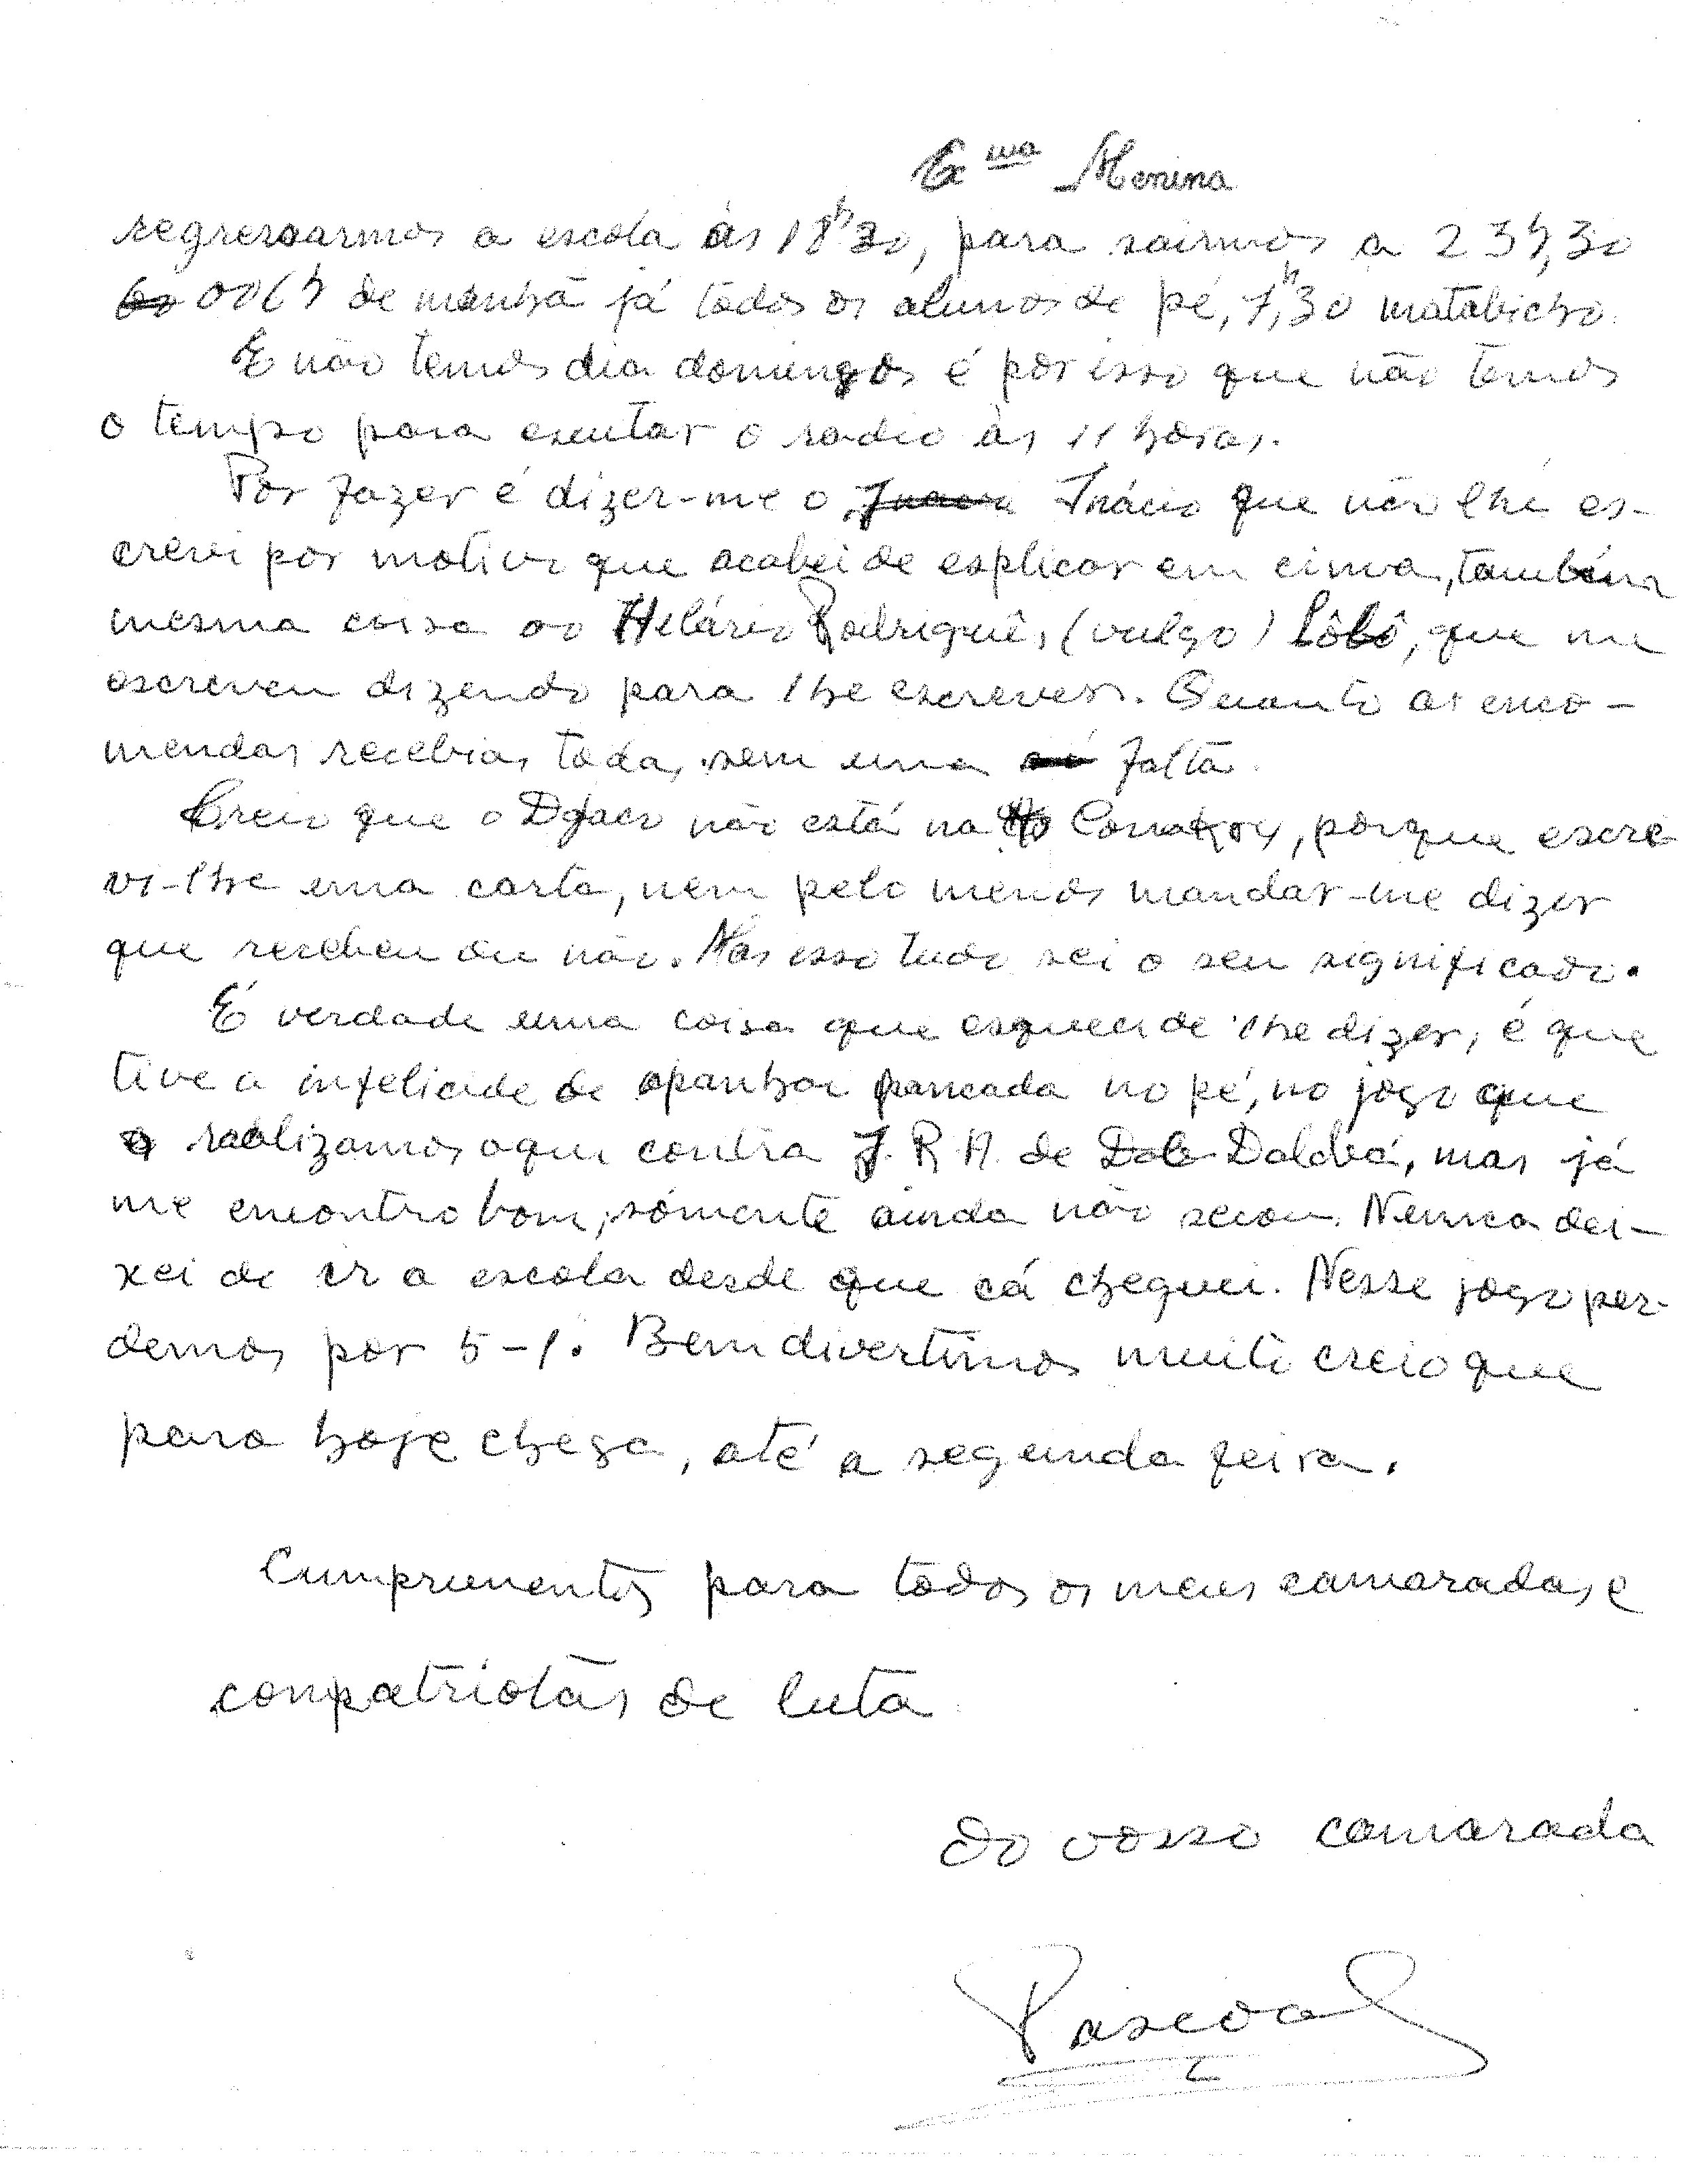 Exma Menina
regressarmos a escola ás 18h30, para sairmos a 23h,30
006h de manhã já todos os alunos de pé, 7h,30 matabicho.
E não temos dia domingos é por isso que não temos
o tempo para escutar o radio às 11 horas.
Por fazer é dizer-me o Inácio que não lhe es-
crevi por motivo que acabei de esplicar em cima, também
mesma coisa ao Helário Rodriguês (vulgo) Lôbô, que me
escreveu dizendo para lhe escrever. Quanto as enco-
mendas recebias todas sem uma falta.
Creio que o não está na Conakry, porque escre-
vi-lhe uma carta, nem pelo menos mandar-me dizer
que recebeu ou não. Mas isso tudo sei o seu significado.
É verdade uma coisa que esqueci de lhe dizer, é que
tive a infelicide de apanhar pancada no pé, no jogo que
realizamos aqui contra J. R. A. de Dalabá, mas já
me encontro bom, sómente ainda não secou. Nunca dei-
xei de ir a escola desde que cá cheguei. Nesse jogo per-
demos por 5-1. Bem divertimos muito creio que
para hoje chega, até a segunda feira.
Cumprimentos para todos os meus camaradas e
conpatriotas de luta
do vosso camarada
Pascoal